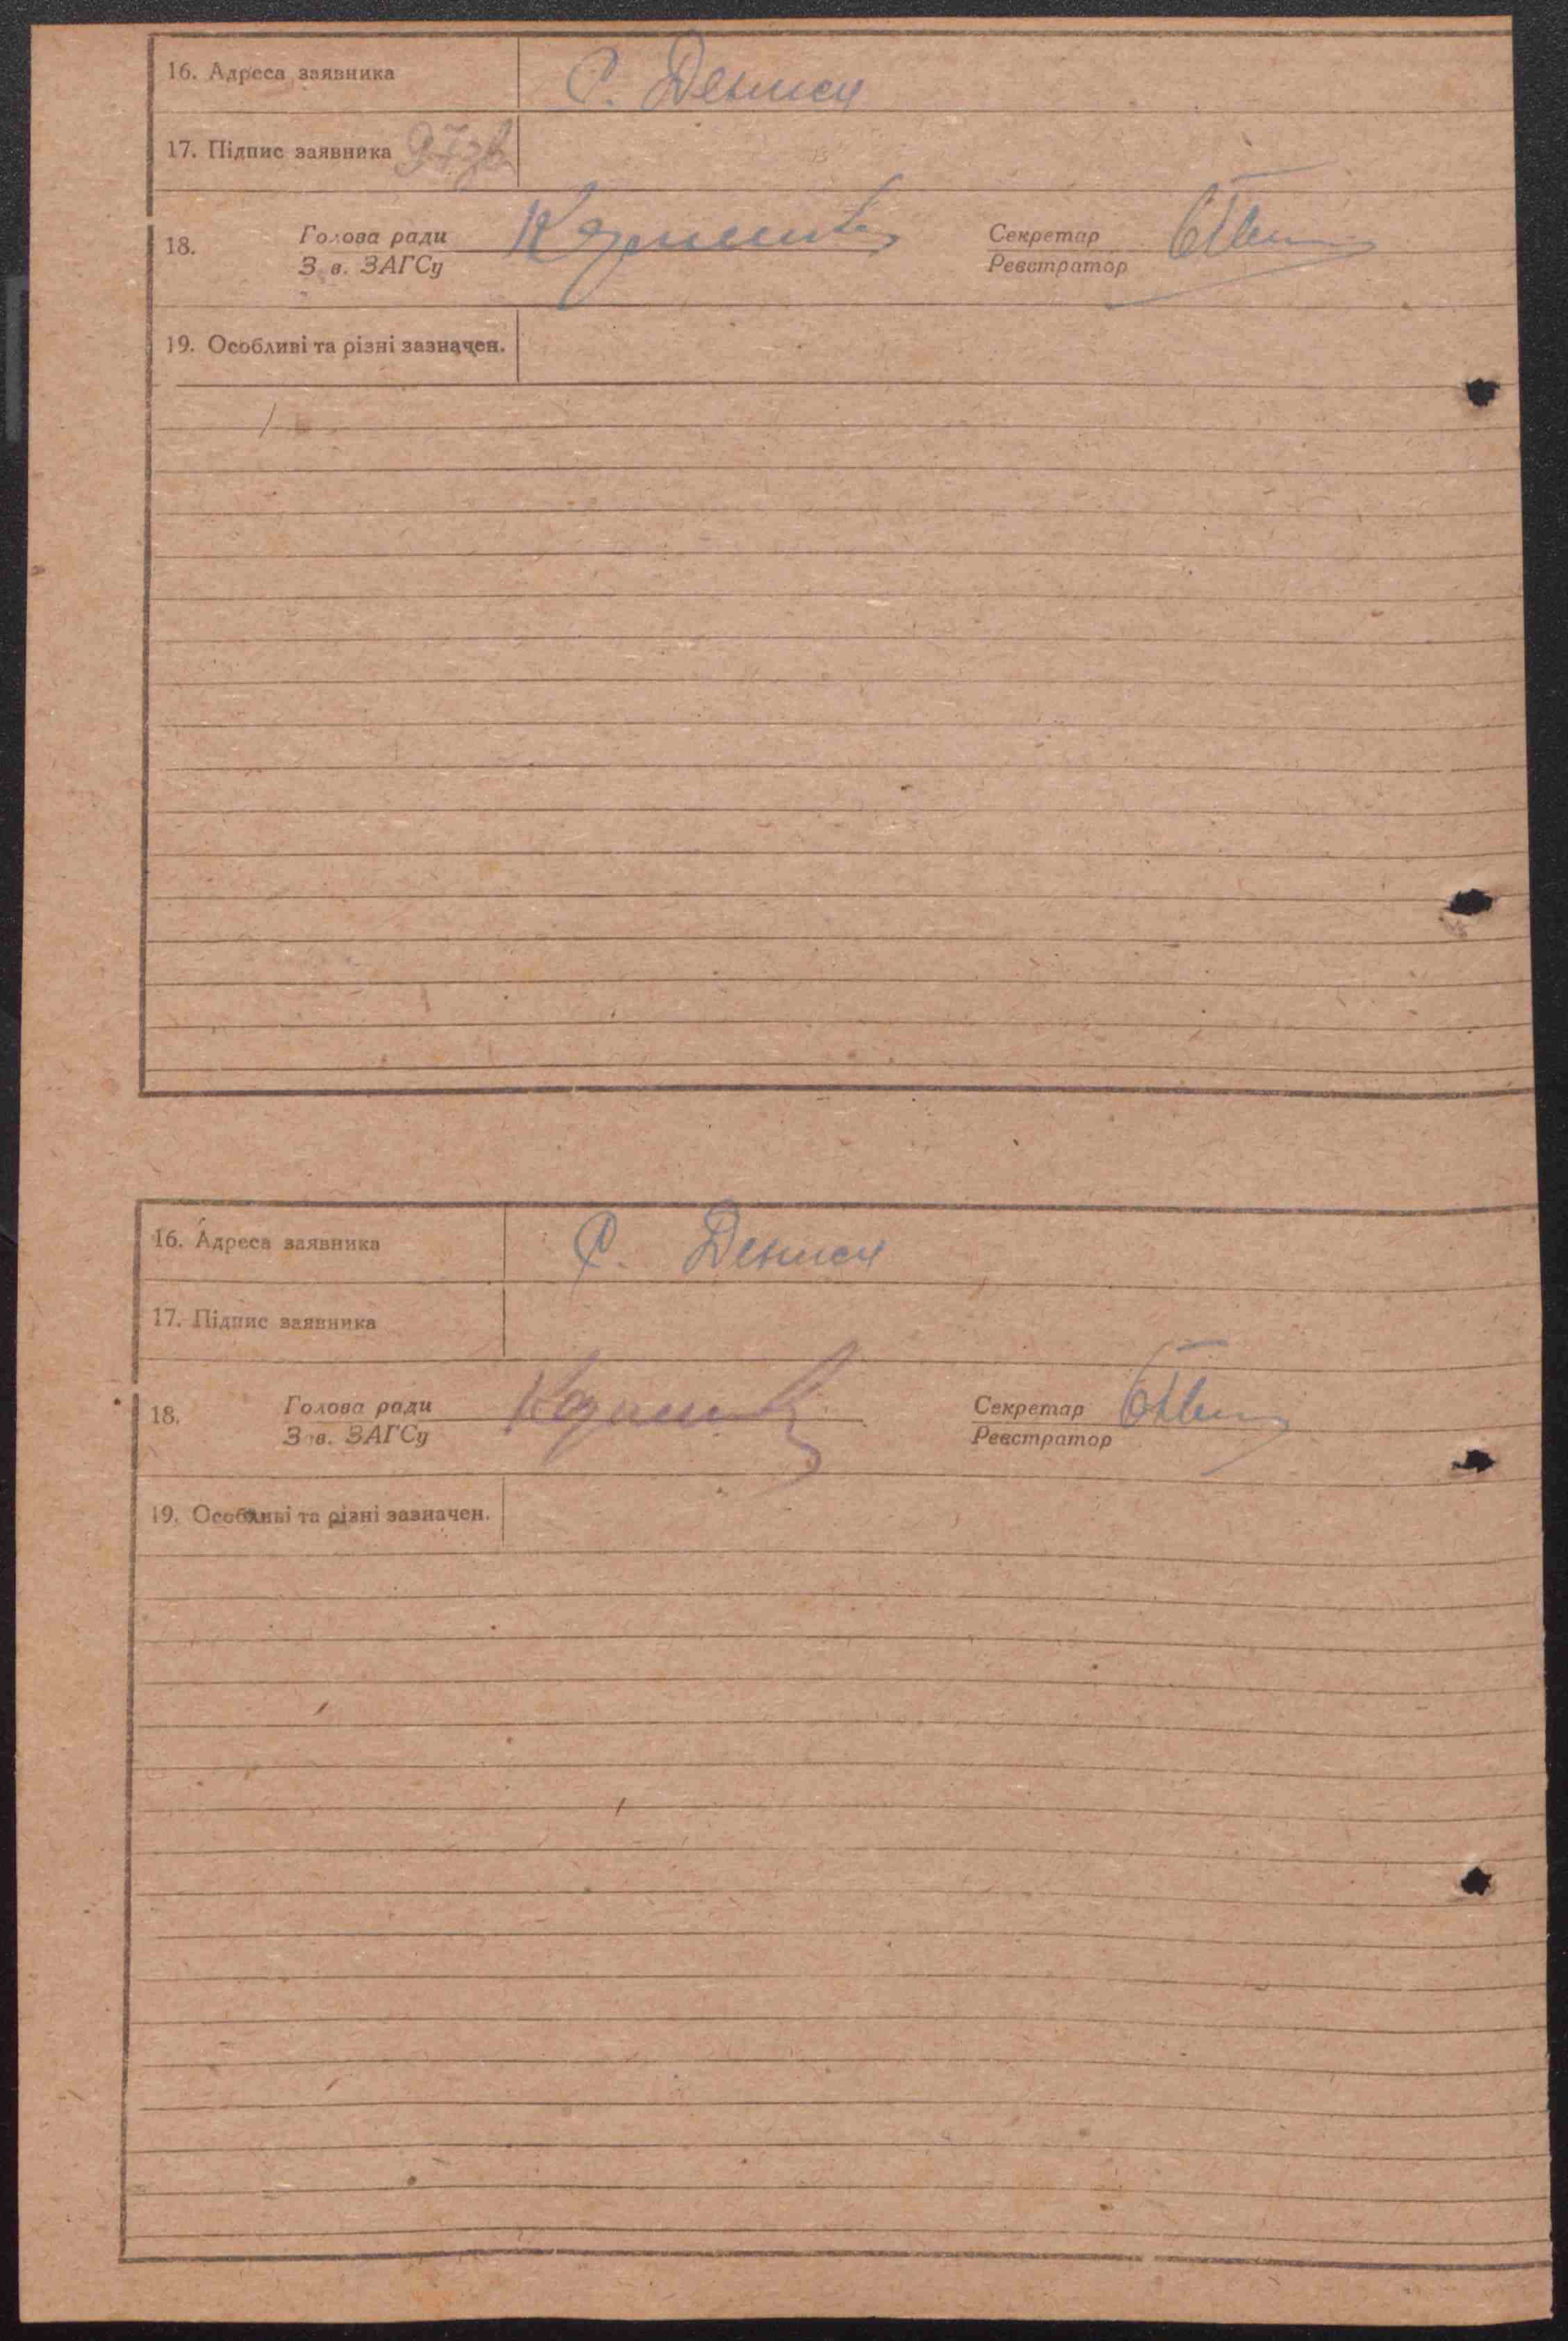 16. Адреса заявника С. Дениси
17. Підпис заявника
18. Голова ради Секретар
Зав. ЗАГСу Реєстратор
19. Особливі та різні зазначен.
16. Адреса заявника С. Дениси
17. Підпис заявника
18. Голова ради Секретар
Зав. ЗАГСу Реєстратор
19. Особливі та різні зазначен.